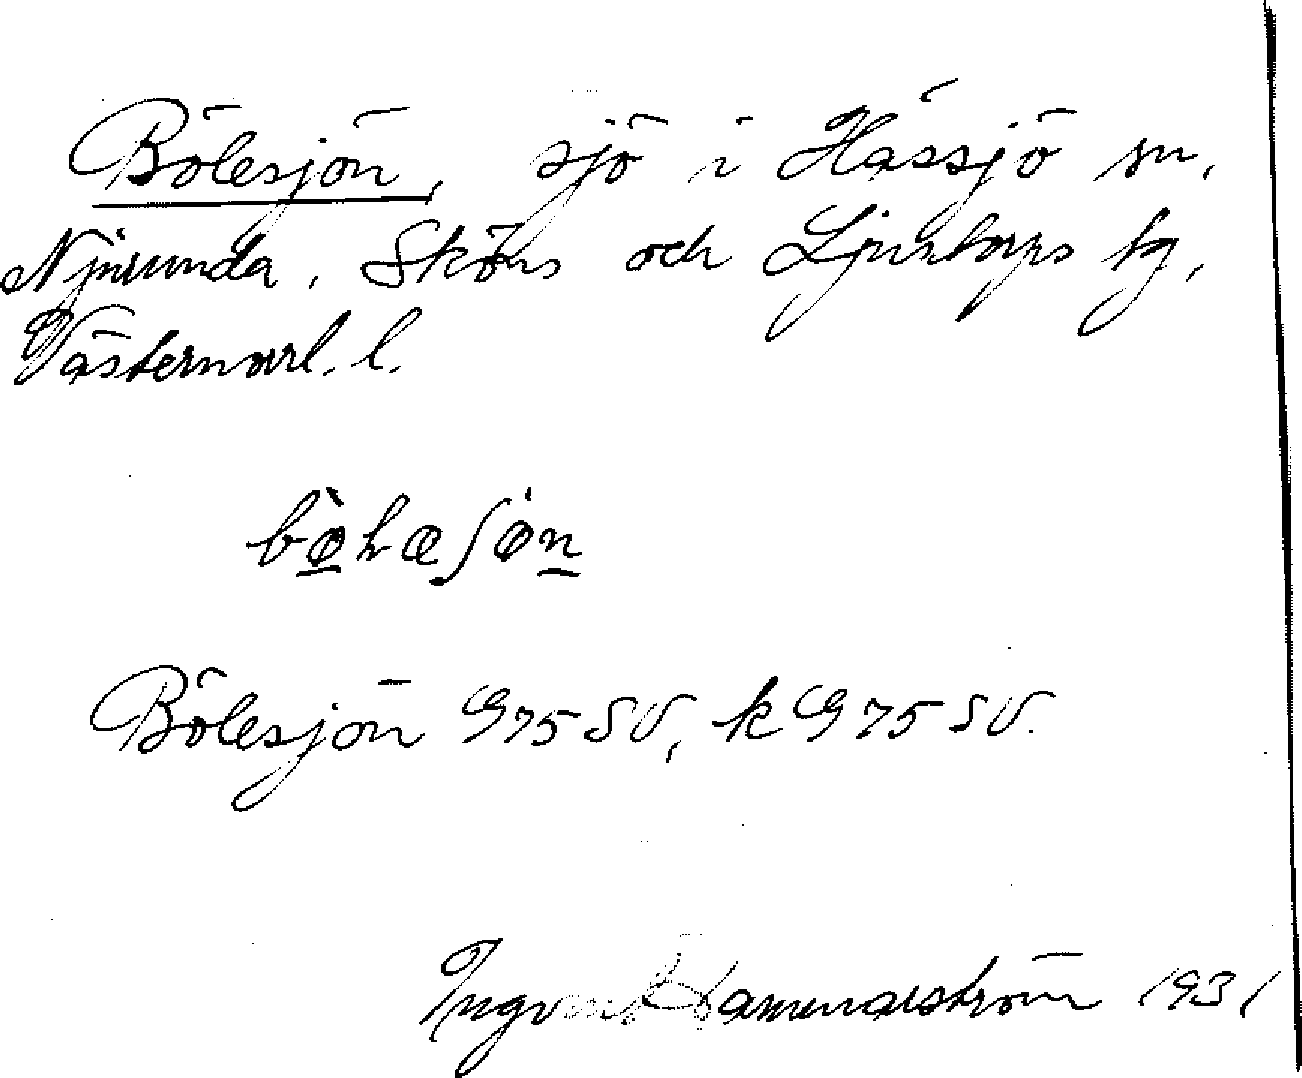 Bölesjön, sjö i Hässjö sn,
Njurunda, Sköns och Ljustorps tg,
Västernorrl. l.
Bölesjön G75 SV, k G75 SV.
Hammarström 1931